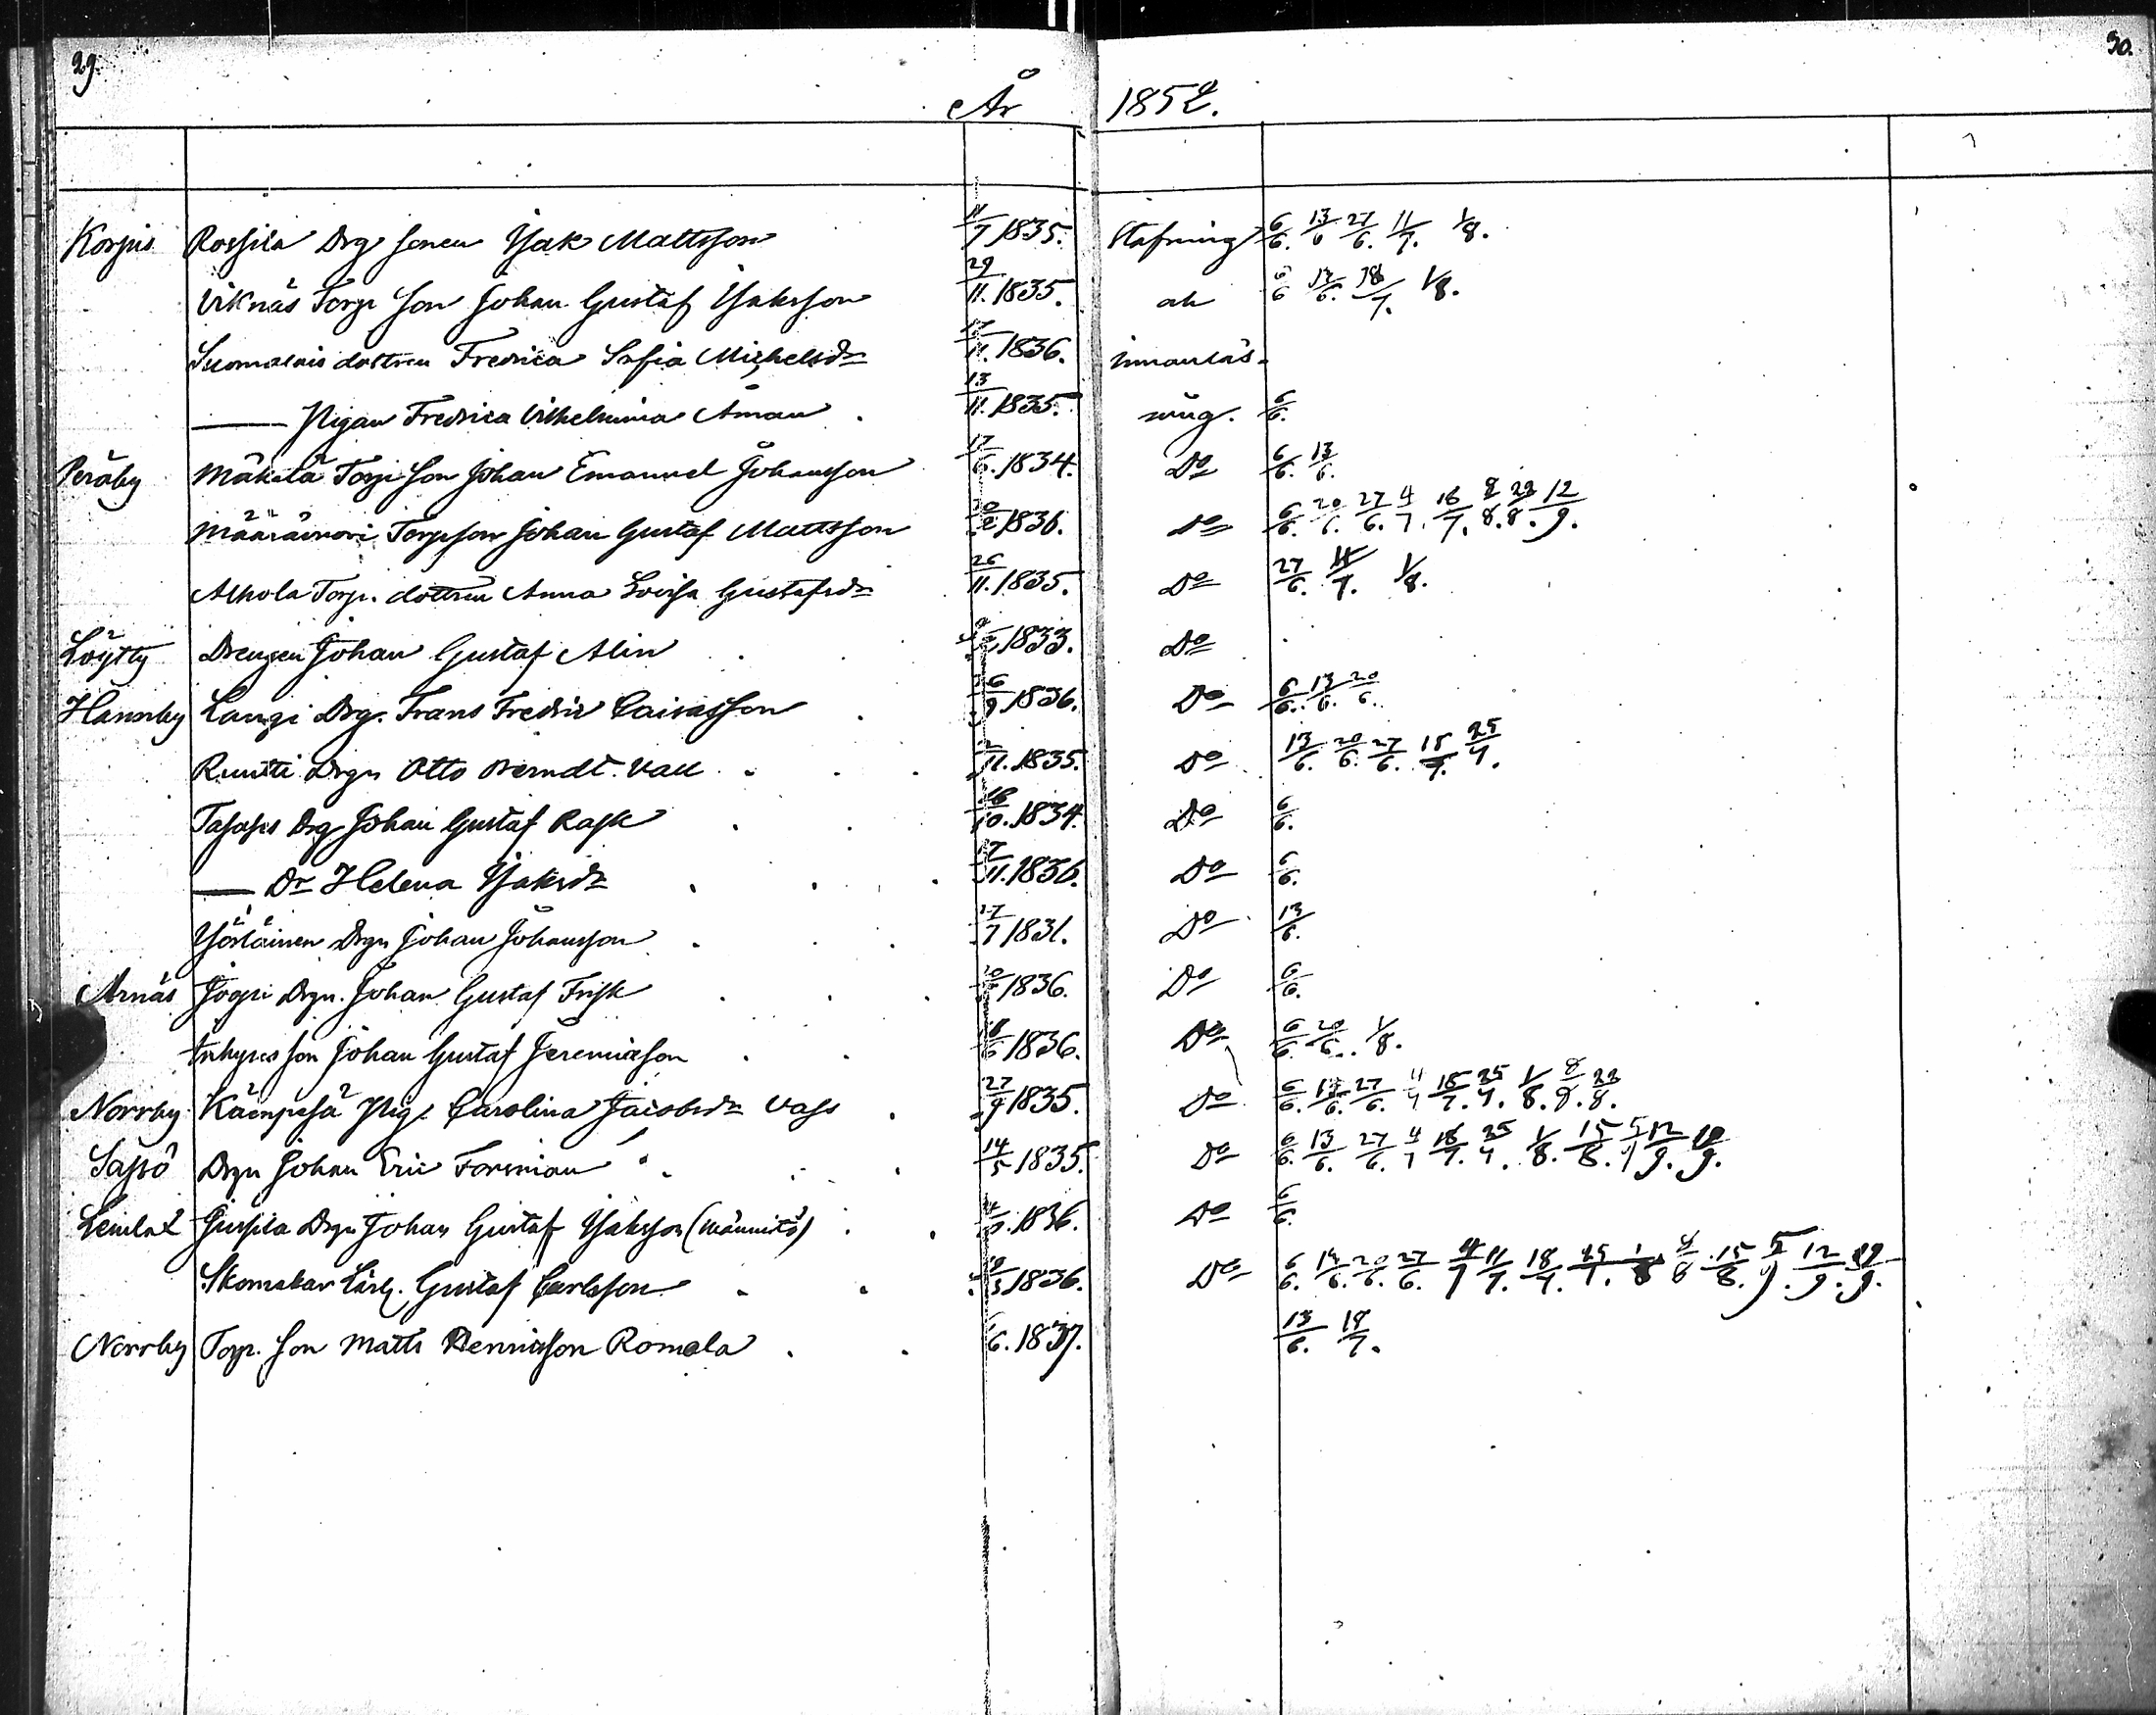 29. 30.
År 1852.
Korpis Rossila Drg sonen Isak Mattsson 11/7 1835. Stafning 6/6. 13/6 27/6. 11/7. 1/8.
Viknäs Torp Son Johan Gustaf Isaksson 29/11. 1835. och 6/6 13/6. 18/7. 1/8.
Suomalais dottren Fredrica Sofia Michelsdr 17/11. 1836. innanläs-
—— Pigan Fredrica Vilhelmina Åman 13/11. 1835. ning. 6/6.
Peräby Mäkelä Torp Son Johan Emanuel Johansson 17/6. 1834. Do 6/6. 13/6.
Torpson Johan Gustaf Mattsson 20/2 1836. Do 6/6. 20/6. 27/6. 4/7. 18/7. 8/8. 22/8. 12/9.
Alhola Torp. dottren Anna Lovisa Gustafsdr 26/11. 1835. Do 27/6. 11/7. 1/8.
Löytty Drengen Johan Gustaf Alin 1833. Do
Hannby Laupi Drg. Frans Fredric Caisasson 26/9 1836. Do 6/6. 13/6. 20/6.
Ruusti Drgn Otto Berndt Vall 2/11. 1835. Do 13/6. 20/6. 27/6. 18/7. 25/7.
Drg Johan Gustaf Rask 16/10. 1834. Do 6/6.
—— Dr Helena Isaksdr 17/11. 1836. Do 6/6.
Yöläinen Drgn Johan Johansson 27/7 1831. Do 13/6.
Arnäs Joopi Drgn. Johan Gustaf Frisk 1836. Do 6/6.
Inhyses son Johan Gustaf Jeremiasson 18/6 1836. Do 6/6. 20/6. 1/8.
Norrby Kämpesä Pig. Carolina Jacobsdr Vass 27/9 1835. Do 6/6. 13/6. 27/6. 4/7 18/7. 25/7. 1/8. 8/8. 22/8.
Sajsö Drgn Johan Eric Forsman 14/5 1835. Do 6/6. 13/6. 27/6. 4/7 18/7. 25/7. 1/8. 15/8. 5/9 12/9. 19/9.
Lemlat Jussila Drgn Johan Gustaf Isaksson (Männistö) 1836. Do 6/6.
Skomakar Lärl. Gustaf Carlsson 1836. Do 6/6. 13/6. 20/6. 27/6. 4/7 11/7. 18/7. 25/7. 1/8 8/8 15/8. 5/9. 12/9. 19/9.
Norrby Torp. Son Matts Henricsson Romola 6. 1837. 13/6. 18/7.